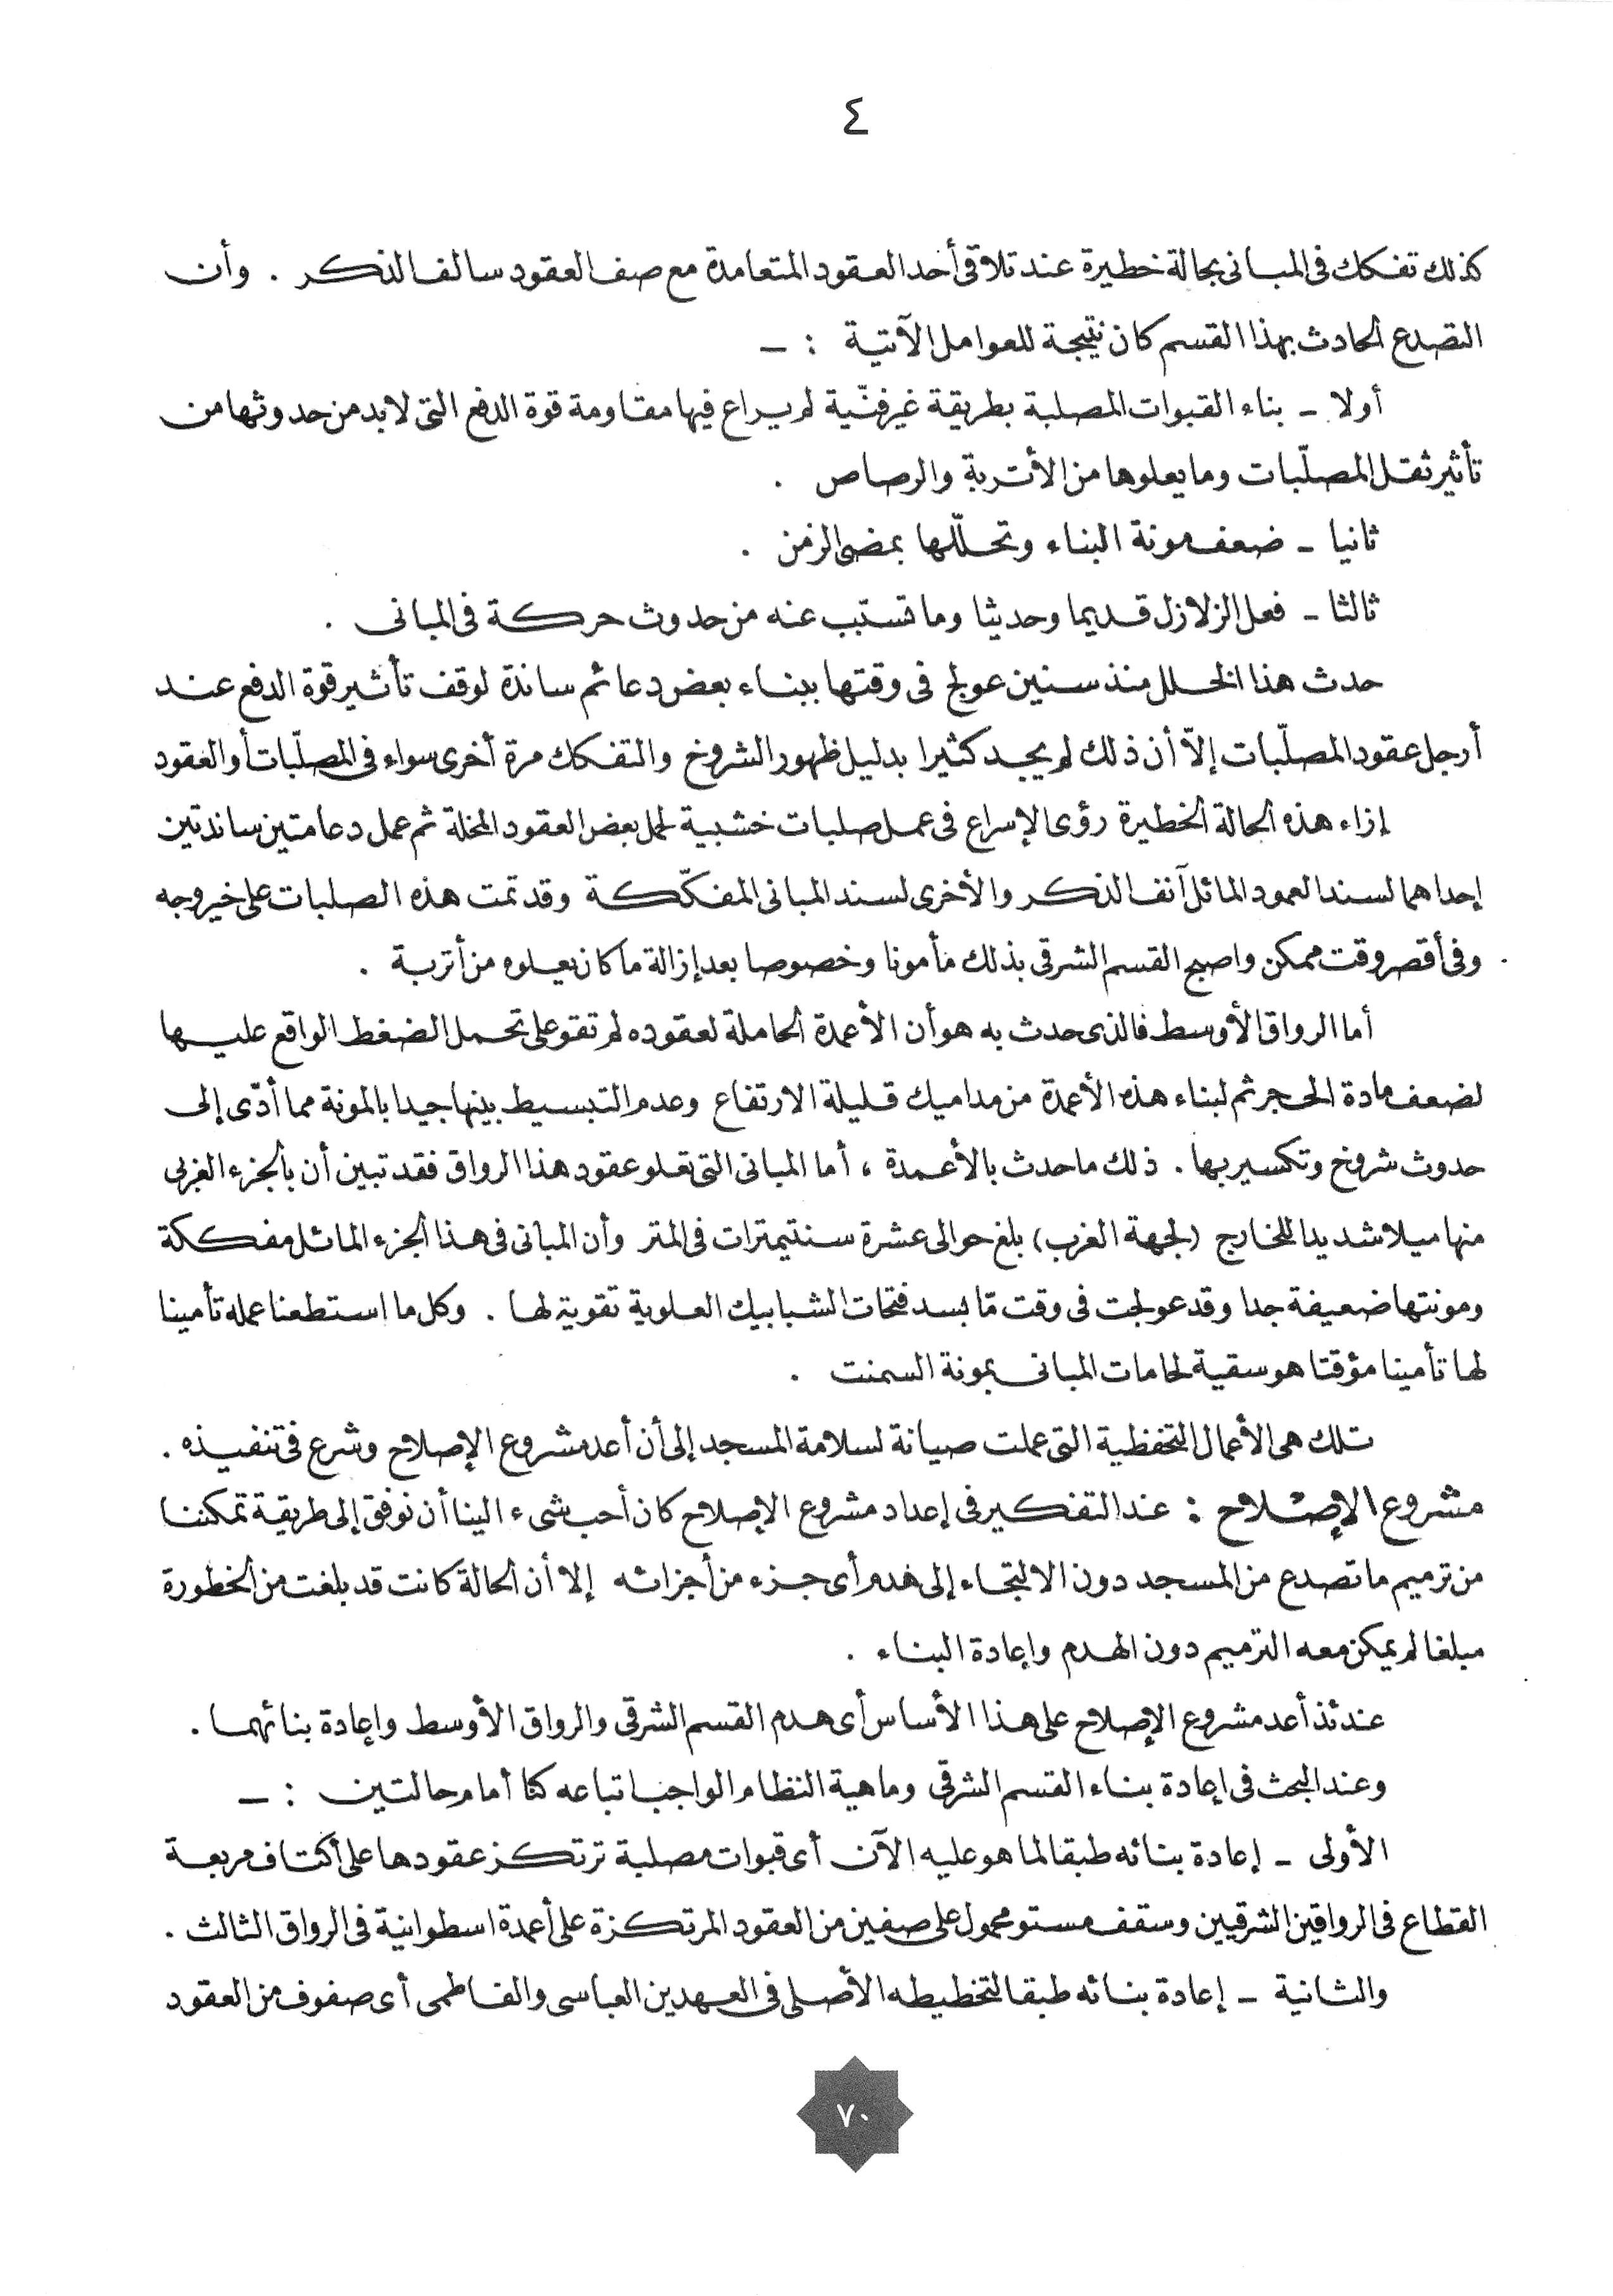 ٤
كذلك تفكك فى المبانى بحالة خطيرة عند تلاقى أحد العقود المتعامدة مع صف العقود سالف الذكر . وأن
التصدع الحادث بهذا القسم كان نتيجة للعوامل الآتية : ـ
أولا ـ بناء القبوات المصلبة بطريقة غير فنّية لم يراع فيها مقاومة قوة الدفع التى لابد من حدوثها من
تأثير ثقل المصلّبات وما يعلوها من الأتربة والرصاص .
ثانيا ـ ضعف مونة البناء وتحلّلها بمضى الزمن .
ثالثا ـ فعل الزلازل قديما وحديثا وما تسبّب عنه من حدوث حركة فى المبانى .
حدث هذا الخلل منذ سنين عولج فى وقتها ببناء بعض دعائم ساندة لوقف تأثير قوة الدفع عند
أرجل عقود المصلّبات إلاّ أن ذلك لم يجد كثيرا بدليل ظهور الشروخ والتفكك مرة أخرى سواء فى المصلّبات أو العقود
إزاء هذه الحالة الخطيرة رؤى الإسراع فى عمل صلبات خشبية لحمل بعض العقود المخلة ثم عمل دعامتين ساندتين
إحداهما لسند العمود المائل آنف الذكر والأخرى لسند المبانى المفكّكة وقد تمت هذه الصلبات على خير وجه
وفى أقصر وقت ممكن واصبح القسم الشرقى بذلك مأمونا وخصوصا بعد إزالة ما كان يعلوه من أتربة .
أما الرواق الأوسط فالذى حدث به هو أن الأعمدة الحاملة لعقوده لم تقو على تحمل الضغط الواقع عليها
لضعف مادة الحجر ثم لبناء هذه الأعمدة من مداميك قليلة الارتفاع وعدم التبسيط بينها جيدا بالمونة مما أدّى إلى
حدوث شروخ وتكسير بها . ذلك ما حدث بالأعمدة ، أما المبانى التى تعلو عقود هذا الرواق فقد تبين أن بالجزء الغربى
منها ميلا شديدا للخارج (لجهة الغرب) بلغ حوالى عشرة سنتيمترات فى المتر وأن المبانى فى هذا الجزء المائل مفككة
ومونتها ضعيفة جدا وقد عولجت فى وقت مّا بسد فتحات الشبابيك العلوية تقوية لها . وكل ما استطعنا عمله تأمينا
لها تأمينا مؤقتا هو سقية لحامات المبانى بمونة السمنت .
تلك هى الأعمال التحفظية التى عملت صيانة لسلامة المسجد إلى أن أعد مشروع الإصلاح وشرع فى تنفيذه .
مشروع الإصلاح : عند التفكير فى إعداد مشروع الإصلاح كان أحب شىء الينا أن نوفق إلى طريقة تمكننا
من ترميم ما تصدع من المسجد دون الالتجاء إلى هدم أى جزء من أجزائه إلا أن الحالة كانت قد بلغت من الخطورة
مبلغا لم يمكن معه الترميم دون الهدم وإعادة البناء .
عندئذ أعد مشروع الإصلاح على هذا الأساس أى هدم القسم الشرقى والرواق الأوسط وإعادة بنائهما .
وعند البحث فى إعادة بناء القسم الشرقى وماهية النظام الواجب اتباعه كنا أمام حالتين : ـ
الأولى ـ إعادة بنائه طبقا لما هو عليه الآن أى قبوات مصلبة ترتكز عقودها على أكتاف مربعة
القطاع فى الرواقين الشرقيين وسقف مستو محمول على صفين من العقود المرتكزة على أعمدة اسطوانية فى الرواق الثالث .
والثانية ـ إعادة بنائه طبقا لتخطيطه الأصلى فى العهدين العباسى والفاطمى أى صفوف من العقود
٧٠